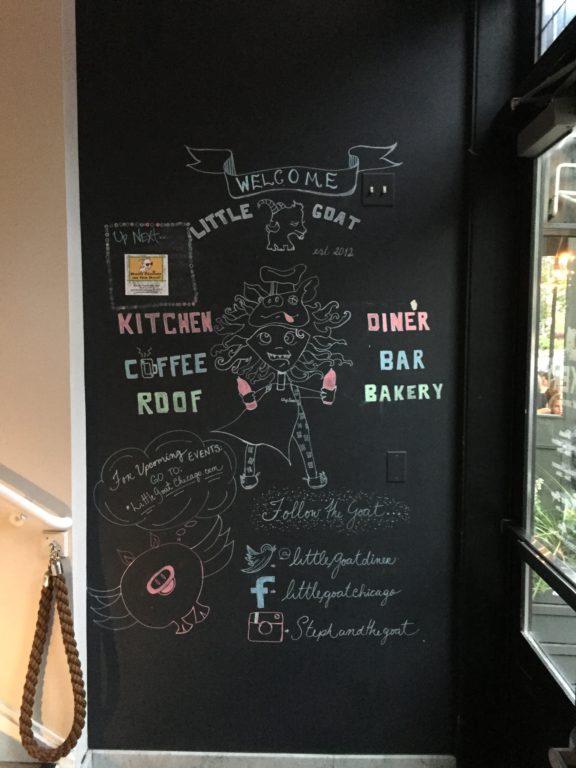 WELCOME
LITTLE GOAT
est 2012
UP NEXT...
KITCHEN
DINER
COFFEE
BAR
ROOF
BAKERY
For Upcoming EVENTS:
GO TO:
LittleGoatChicago.com
Follow the Goat...
@littlegoatdiner
littlegoatchicago
Stephandthegoat